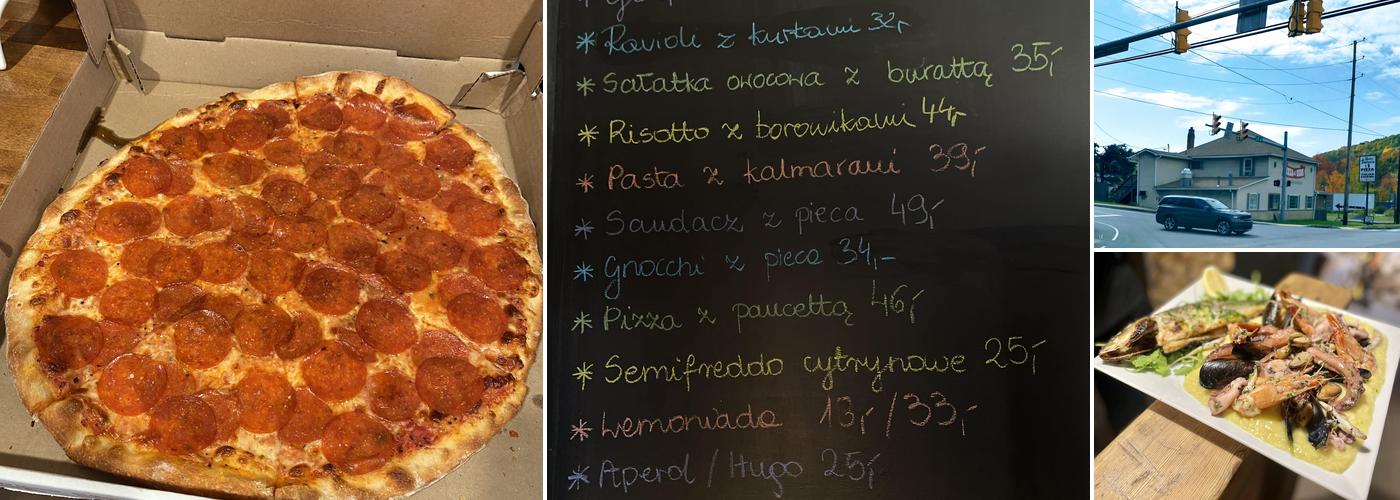 * Ravioli z kurkami 32,-
* Sałatka owocowa z burattą 35,-
* Risotto z borowikami 44,-
* Pasta z kalmarami 39,-
* Sandacz z pieca 49,-
* Gnocchi z pieca 34,-
* Pizza z pancettą 46,-
* Semifreddo cytrynowe 25,-
* Lemoniada 13,-/33,-
* Aperol / Hugo 25,-
PIZZA